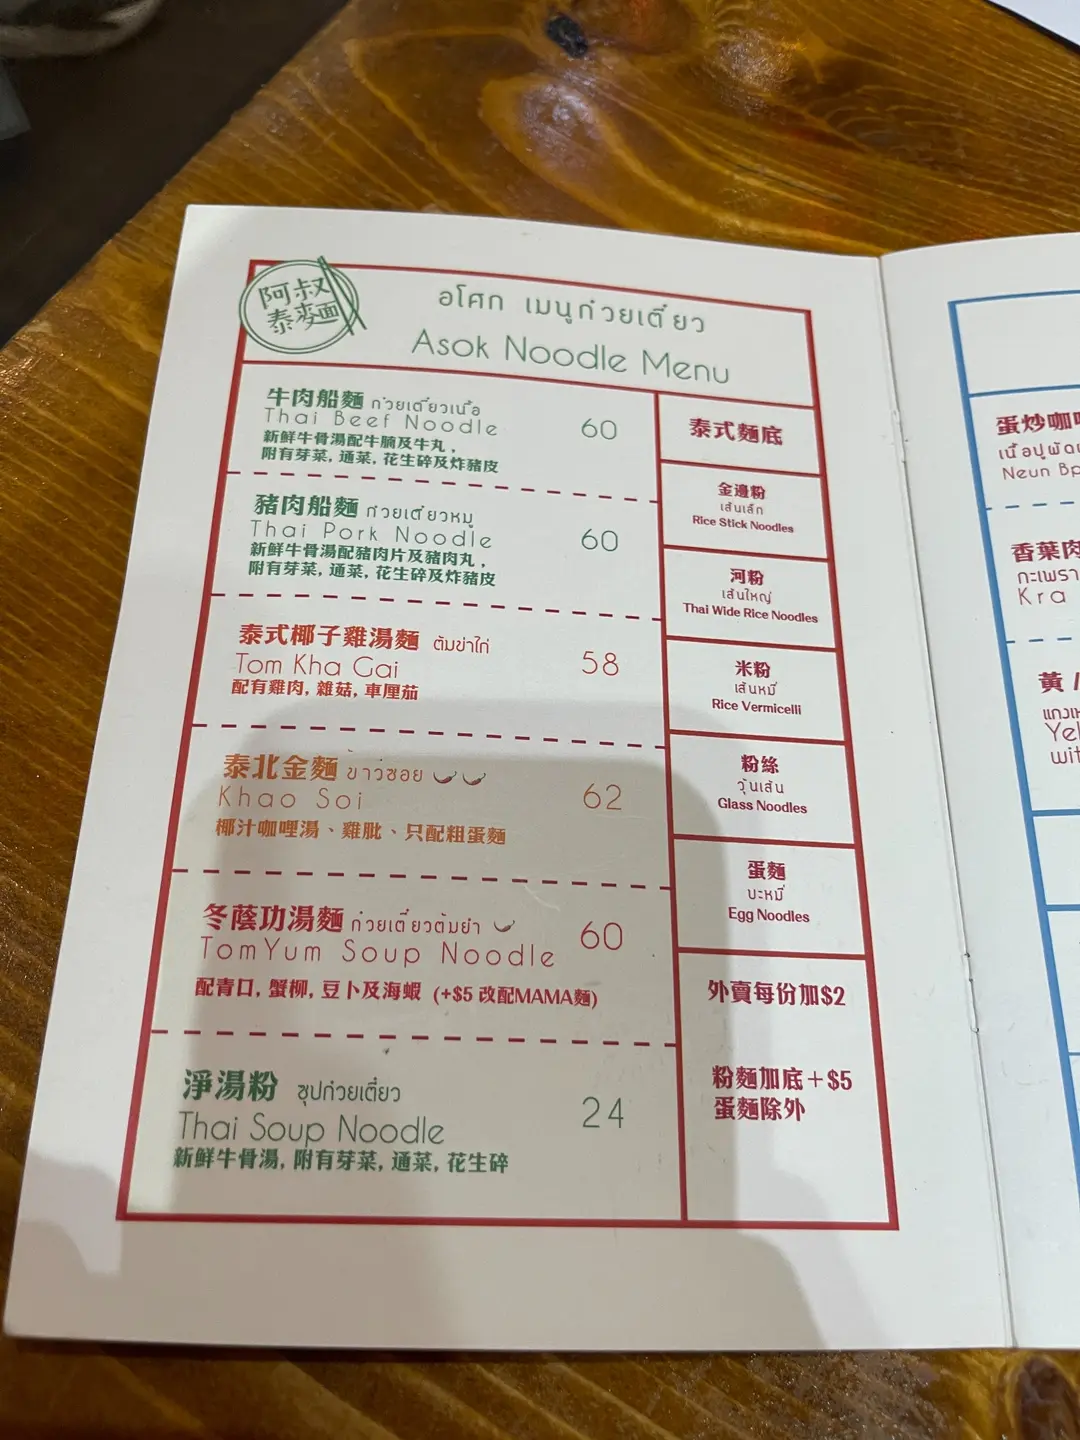 阿叔
泰麵
อโศก เมนูก๋วยเตี๋ยว
Asok Noodle Menu
牛肉船麵 ก๋วยเตี๋ยวเนื้อ
Thai Beef Noodle
60
新鮮牛骨湯配牛腩及牛丸，
附有芽菜, 通菜, 花生碎及炸豬皮
豬肉船麵 ก๋วยเตี๋ยวหมู
Thai Pork Noodle
60
新鮮牛骨湯配豬肉片及豬肉丸，
附有芽菜, 通菜, 花生碎及炸豬皮
泰式椰子雞湯麵 ต้มข่าไก่
Tom Kha Gai
58
配有雞肉, 雜菇, 車厘茄
泰北金麵 ข้าวซอย
Khao Soi
62
椰汁咖哩湯、雞肶、只配粗蛋麵
冬蔭功湯麵 ก๋วยเตี๋ยวต้มยำ
TomYum Soup Noodle
60
配青口, 蟹柳, 豆卜及海蝦 (+$5 改配MAMA麵)
淨湯粉 ซุปก๋วยเตี๋ยว
Thai Soup Noodle
24
新鮮牛骨湯, 附有芽菜, 通菜, 花生碎
泰式麵底
金邊粉
เส้นเล็ก
Rice Stick Noodles
河粉
เส้นใหญ่
Thai Wide Rice Noodles
米粉
เส้นหมี่
Rice Vermicelli
粉絲
วุ้นเส้น
Glass Noodles
蛋麵
บะหมี่
Egg Noodles
外賣每份加$2
粉麵加底＋$5
蛋麵除外
蛋炒咖
Neun
香葉肉
กะเพรา
Kra
黃